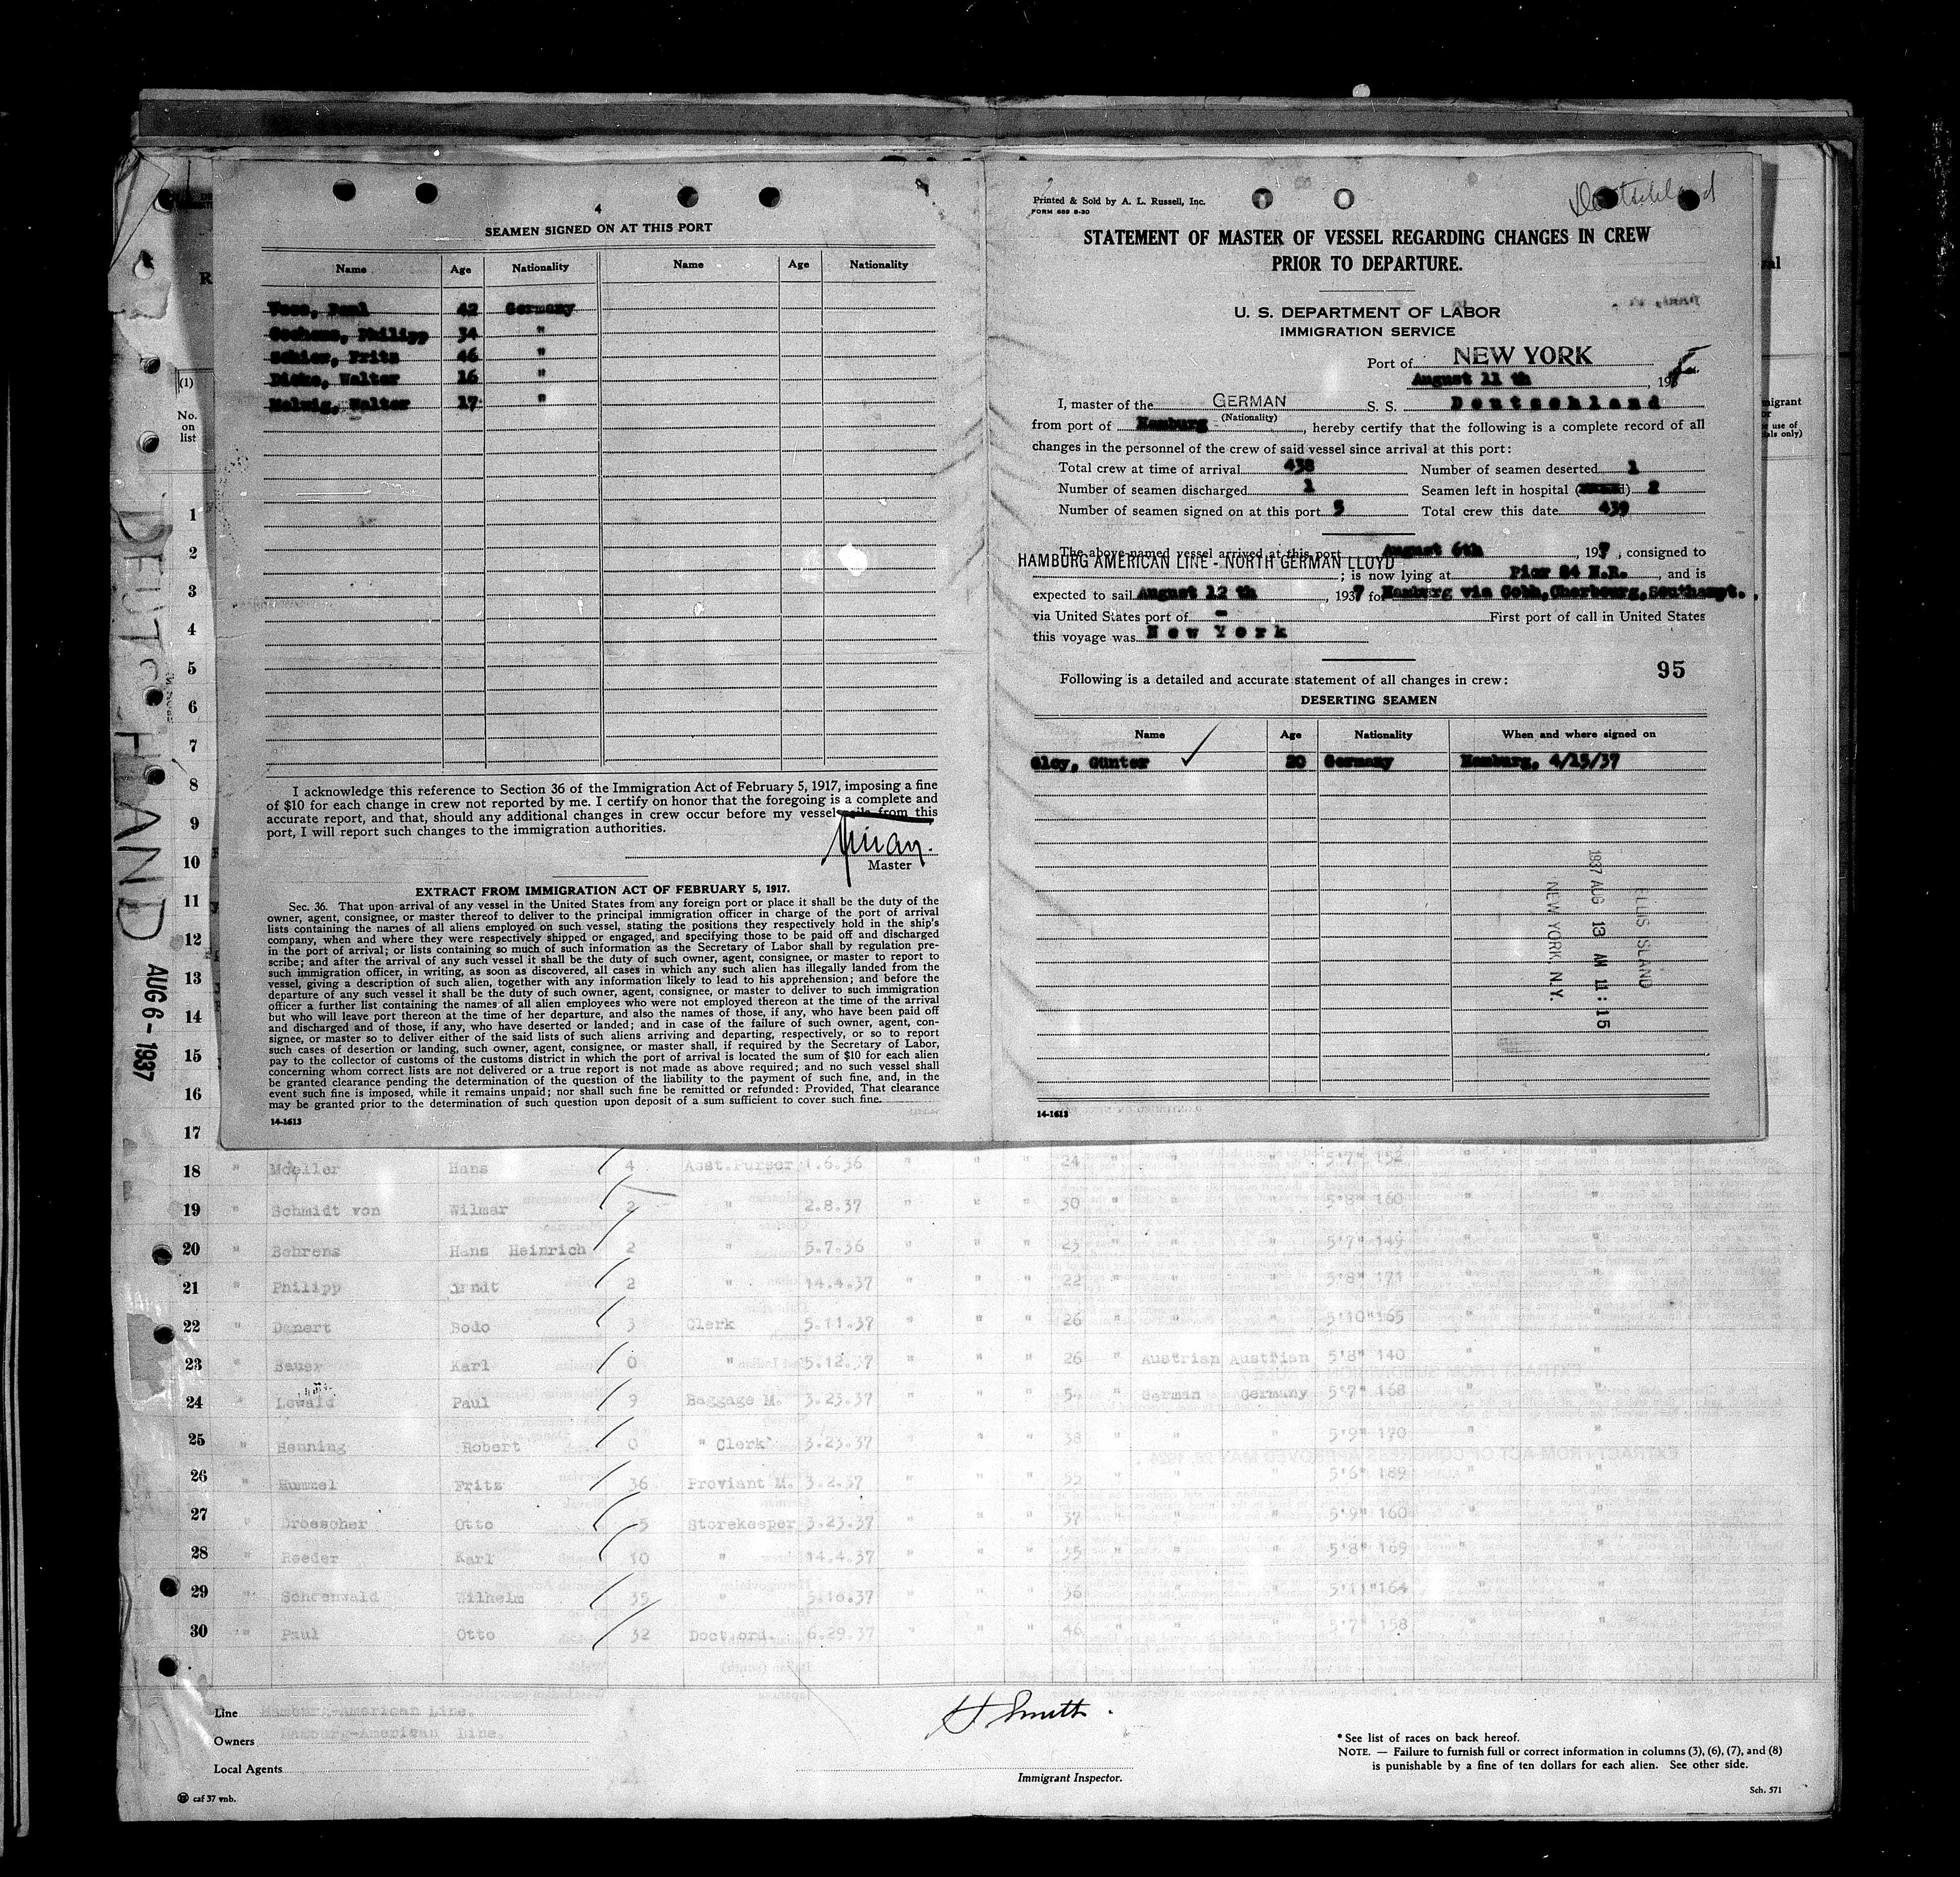 4
SEAMEN SIGNED ON AT THIS PORT
Name Age Nationality Name Age Nationality
Paul 42 Germany
Philipp 34 "
Fritz 46 "
Walter 16 "
Walter 17 "
I acknowledge this reference to Section 36 of the Immigration Act of February 5, 1917, imposing a fine
of $10 for each change in crew not reported by me. I certify on honor that the foregoing is a complete and
accurate report, and that, should any additional changes in crew occur before my vessel sails from this
port, I will report such changes to the immigration authorities.
Master
EXTRACT FROM IMMIGRATION ACT OF FEBRUARY 5, 1917.
Sec. 36. That upon arrival of any vessel in the United States from any foreign port or place it shall be the duty of the
owner, agent, consignee, or master thereof to deliver to the principal immigration officer in charge of the port of arrival
lists containing the names of all aliens employed on such vessel, stating the positions they respectively hold in the ship's
company, when and where they were respectively shipped or engaged, and specifying those to be paid off and discharged
in the port of arrival; or lists containing so much of such information as the Secretary of Labor shall by regulation pre-
scribe; and after the arrival of any such vessel it shall be the duty of such owner, agent, consignee, or master to report to
such immigration officer, in writing, as soon as discovered, all cases in which any such alien has illegally landed from the
vessel, giving a description of such alien, together with any information likely to lead to his apprehension; and before the
departure of any such vessel it shall be the duty of such owner, agent, consignee, or master to deliver to such immigration
officer a further list containing the names of all alien employees who were not employed thereon at the time of the arrival
but who will leave port thereon at the time of her departure, and also the names of those, if any, who have been paid off
and discharged and of those, if any, who have deserted or landed; and in case of the failure of such owner, agent, con-
signee, or master so to deliver either of the said lists of such aliens arriving and departing, respectively, or so to report
such cases of desertion or landing, such owner, agent, consignee, or master shall, if required by the Secretary of Labor,
pay to the collector of customs of the customs district in which the port of arrival is located the sum of $10 for each alien
concerning whom correct lists are not delivered or a true report is not made as above required; and no such vessel shall
be granted clearance pending the determination of the question of the liability to the payment of such fine, and, in the
event such fine is imposed, while it remains unpaid; nor shall such fine be remitted or refunded: Provided, That clearance
may be granted prior to the determination of such question upon deposit of a sum sufficient to cover such fine.
14-1613
Printed & Sold by A. L. Russell, Inc.
FORM 689 8-30
Deutschland
STATEMENT OF MASTER OF VESSEL REGARDING CHANGES IN CREW
PRIOR TO DEPARTURE.
U. S. DEPARTMENT OF LABOR
IMMIGRATION SERVICE
Port of NEW YORK
August 11 th , 19
I, master of the GERMAN S. S. Deutschland
(Nationality)
from port of Hamburg , hereby certify that the following is a complete record of all
changes in the personnel of the crew of said vessel since arrival at this port:
Total crew at time of arrival 438 Number of seamen deserted 1
Number of seamen discharged 1 Seamen left in hospital 2
Number of seamen signed on at this port 5 Total crew this date 439
The above-named vessel arrived at this port August 6th , 1937 , consigned to
HAMBURG AMERICAN LINE - NORTH GERMAN LLOYD ; is now lying at Pier 84 N.R. , and is
expected to sail August 12 th , 1937 for Hamburg via Cobh, Cherbourg, Southampt.
via United States port of - First port of call in United States
this voyage was New York
95
Following is a detailed and accurate statement of all changes in crew:
DESERTING SEAMEN
Name Age Nationality When and where signed on
Gloy, Günter 20 Germany Hamburg, 4/15/37
ELLIS ISLAND
1937 AUG 13 AM 11:15
NEW YORK, N.Y.
14-1613
DEUTSCHLAND AUG 6-1937
(1)
No.
on
list
1
2
3
4
5
6
7
8
9
10
11
12
13
14
15
16
17
18 " Moeller Hans 4 Asst.Purser 1.6.36 " " " 24 " " " 5'7" 152 " "
19 " Schmidt von Wilmar 2 " 2.8.37 " " " 30 " " " 5'8" 160 " "
20 " Behrens Hans Heinrich 2 " 5.7.36 " " " 23 " " " 5'7" 149 " "
21 " Philipp Arndt 2 " 14.4.37 " " " 22 " " " 5'8" 171 " "
22 " Danert Bodo 3 Clerk 5.11.37 " " " 26 " " " 5'10" 165 " "
23 " Bauer Karl 0 " 5.12.37 " " " 26 " Austrian Austrian 5'8" 140 " "
24 " Lewald Paul 9 Baggage M. 3.23.37 " " " 54 " German Germany 5'7" 168 " "
25 " Henning Robert 0 " Clerk 3.23.37 " " " 38 " " " 5'9" 170 " "
26 " Hummel Fritz 36 Proviant M. 3.2.37 " " " 55 " " " 5'6" 189 " "
27 " Droescher Otto 5 Storekeeper 3.23.37 " " " 37 " " " 5'9" 160 " "
28 " Roeder Karl 10 " 14.4.37 " " " 35 " " " 5'8" 169 " "
29 " Schoenwald Wilhelm 35 " 5.16.37 " " " 56 " " " 5'11" 164 " "
30 " Paul Otto 32 Doct.ord. 6.29.37 " " " 46 " " " 5'7" 158 " "
Line Hamburg-American Line.
Owners Hamburg-American Line.
Local Agents
H Smith.
Immigrant Inspector.
* See list of races on back hereof.
NOTE. — Failure to furnish full or correct information in columns (3), (6), (7), and (8)
is punishable by a fine of ten dollars for each alien. See other side.
caf 37 vnb.
Sch. 571